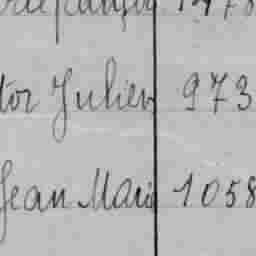 tor Julien 973
Jean Marie 1058